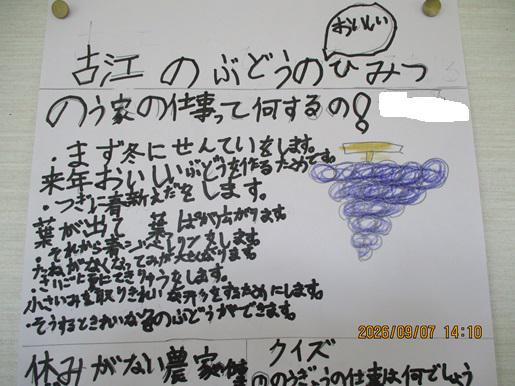 おいしい
古江のぶどうのひみつ
のう家の仕事って何するの!
・まず冬にせんていをします。
来年おいしいぶどうを作るためです。
・つぎに春新えだをします。
葉が出て 葉 ががります
・それから春ジベレリンをします。
たねがなくなってみが大きなります
・さいごに夏にてきりゅうをします。
小さいみを取りきれい な形をするためにします。
・そうするときれいな のぶどうができます。
休みがない農家
クイズ
のうぎょうの仕事は何でしょう
2026/09/07 14:10